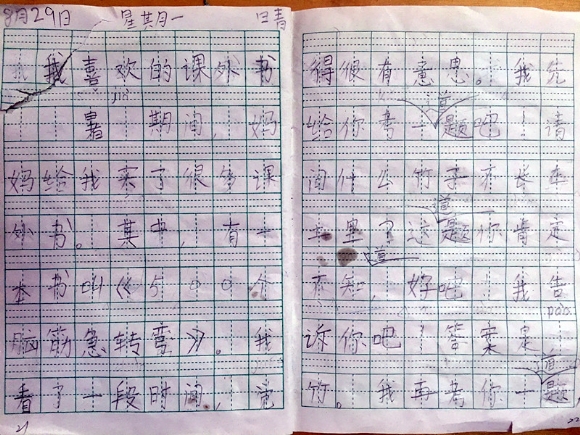 8月29日 星期一 晴
我喜欢的课外书
暑期间,妈
妈给我买了很多课
外书。其中,有一
本书叫《500个
脑筋急转弯》。我
看了一段时间,觉
得很有意思。我先
给你考一道题吧!请
问什么竹子不长在
土里?这道题你肯定
不知道,好吧!我告
诉你吧!答案是pào
竹。我再考你一道题